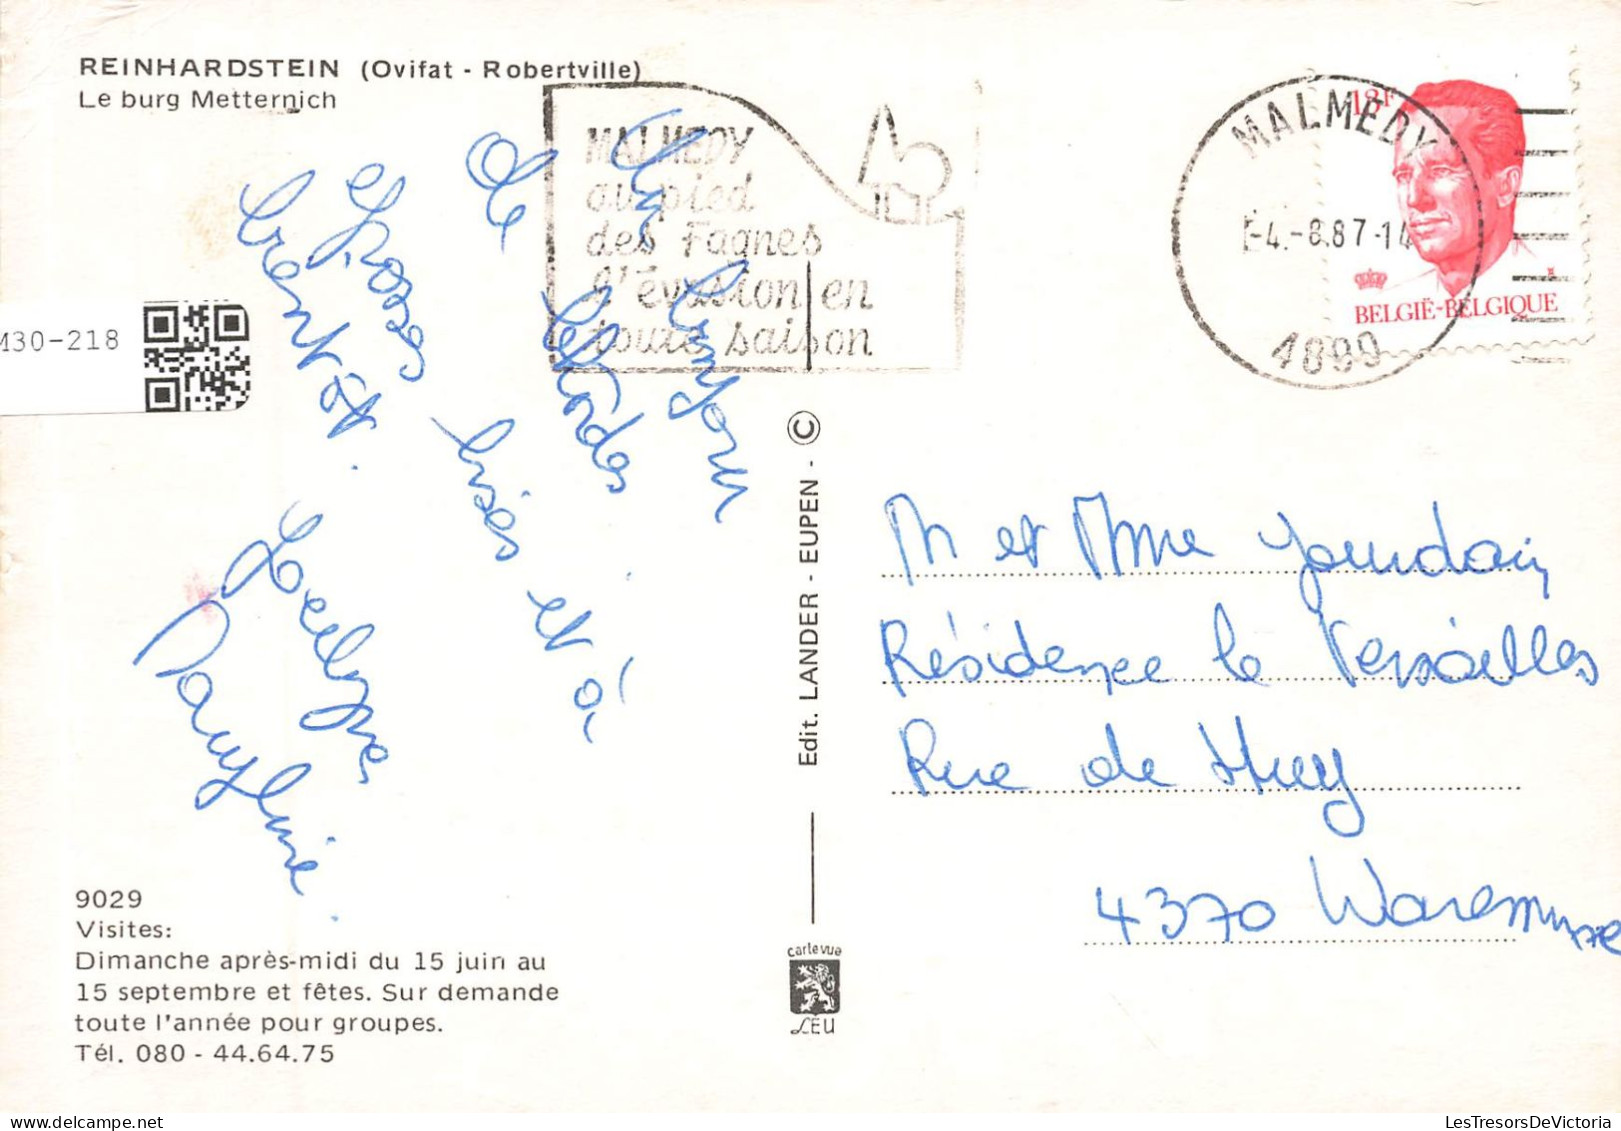 REINHARDSTEIN (Ovifat - Robertville)
Le burg Metternich
MALMEDY
au pied
des Fagnes
l'évasion en
toute saison
MALMEDY
-4.-8.87-14
4890
13F
BELGIË-BELGIQUE
M30-218
Un bonjour
de
Grosses bises et à
bientôt.
Jocelyne
Edit. LANDER - EUPEN - ©
M et Mme Jourdain
Résidence le Versailles
Rue de Huy
4370 Waremme
9029
Visites:
Dimanche après-midi du 15 juin au
15 septembre et fêtes. Sur demande
toute l'année pour groupes.
Tél. 080 - 44.64.75
carte vue
LEU
LesTresorsDeVictoria.com